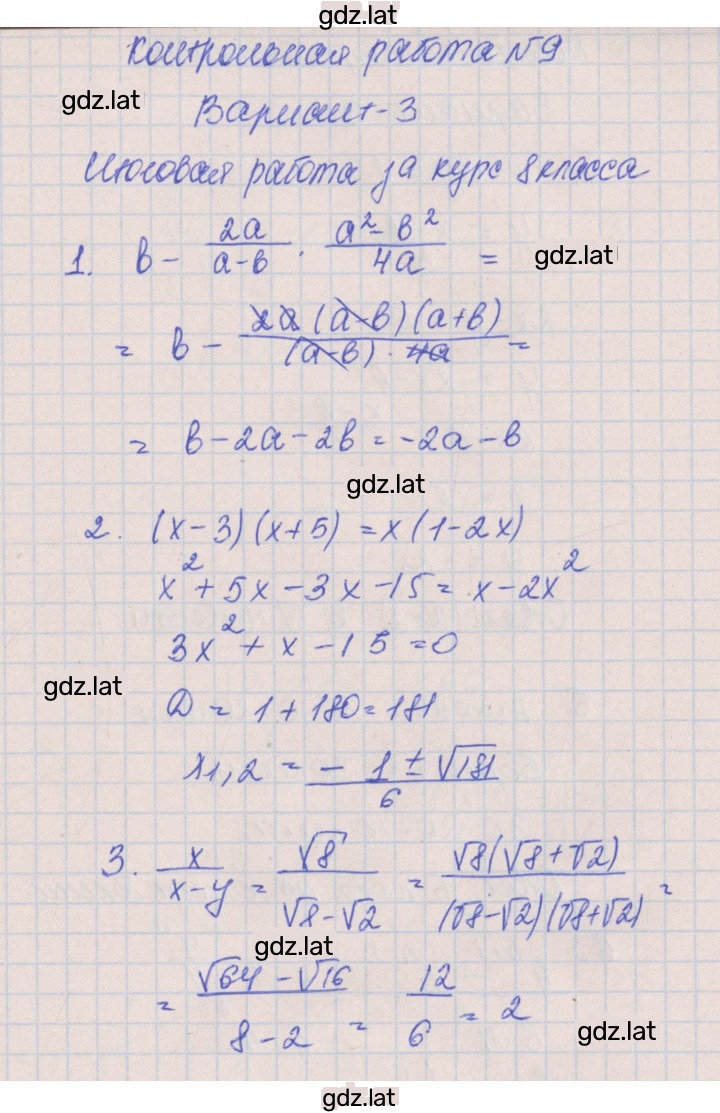 gdz.lat
Контрольная работа №9
gdz.lat
Вариант-3
Итоговая работа за курс 8 класса
1. в - 2а/(а-в) · (а²-в²)/4а =
gdz.lat
= в - 2а(а-в)(а+в)/((а-в)·4а) =
= в-2а-2в=-2а-в
gdz.lat
2. (x-3)(x+5)=x(1-2x)
x²+5x-3x-15=x-2x²
3x²+x-15=0
gdz.lat
D=1+180=181
x1,2 = -1±√181/6
3. x/(x-y) = √8/(√8-√2) = √8(√8+√2)/((√8-√2)(√8+√2)) =
gdz.lat
= (√64-√16)/(8-2) = 12/6 = 2
gdz.lat
gdz.lat